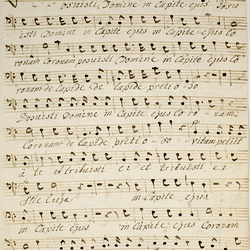 Posuisti Domine in Capite ejus Posu
isti Domine in Capite ejus in Capite ejus Co
ronam Coronam posuisti Domine in Capite ejus Co
ronam de lapide de lapide pretioso
Posuisti Domine in Capite ejus Coronam
Coronam de lapide pretioso Vitam petiit
à te et tribuisti ei et tribuisti ei
Alleluja in Capite ejus
in Capite ejus in Capite ejus Coronam